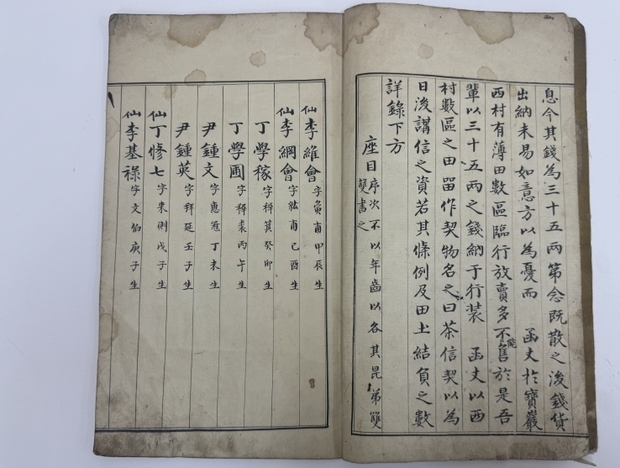 息今其錢為三十五兩第念既散之後錢貨
出納未易如意方以為憂而 函丈於寶巖
西村有薄田數區臨行放賣多不能售於是吾
輩以三十五兩之錢納于行装 函丈以西
村數區之田留作契物名之曰茶信契以為
日後講信之資若其條例及田土結負之數
詳錄下方
座目 序次不以年齒以各其昆弟雙
雙書之
仙 李維會 字寅甫甲辰生
仙 李綱會 字紘甫己酉生
丁學稼 字穉箕癸卯生
丁學圃 字穉裘丙午生
尹鍾文 字惠冠丁未生
尹鍾英 字拜延壬子生
仙 丁修七 字來則戊子生
仙 李基祿 字文伯庚子生